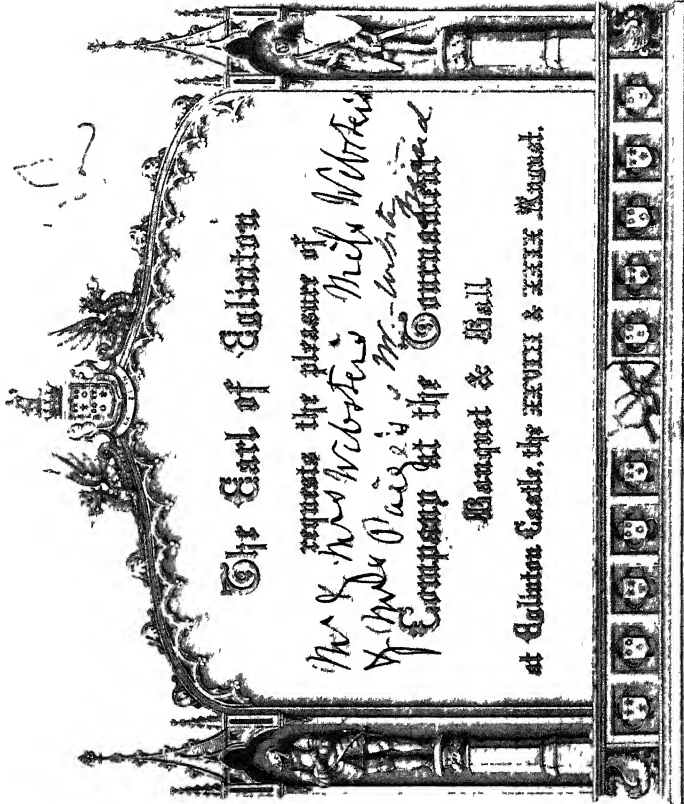 The Earl of Eglinton
requests the pleasure of
Mr & Mrs Webster's Miss Webster
& Mrs Paige's
Company at the Tournament
Banquet & Ball
at Eglinton Castle, the XXVIII & XXIX August.